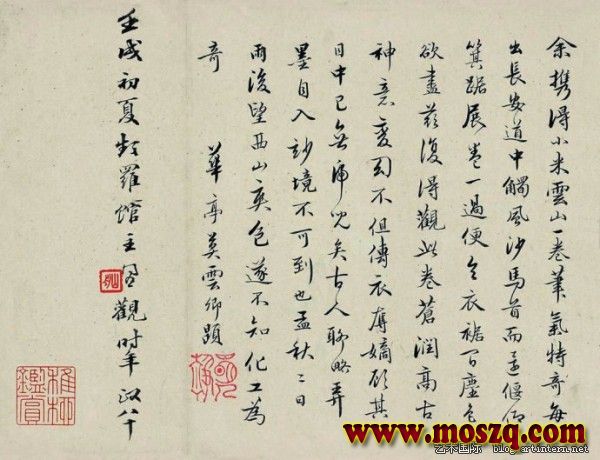 余攜得小米雲山一卷筆氣特奇每
出長安道中觸風沙馬首而還偃仰
箕踞展卷一過便令衣裾間塵色
欲盡茲復得觀此卷蒼潤高古
神意變幻不但傳衣嫡其
目中已無虎兒矣古人聊略弄
墨自入妙境不可到也孟秋二日
雨後望西山爽色遂不知化工為
奇
華亭莫雲卿題
壬戌初夏頻羅館主觀時年政八十
鑑賞
www.moszq.com
艺术国际 blog.artintern.net